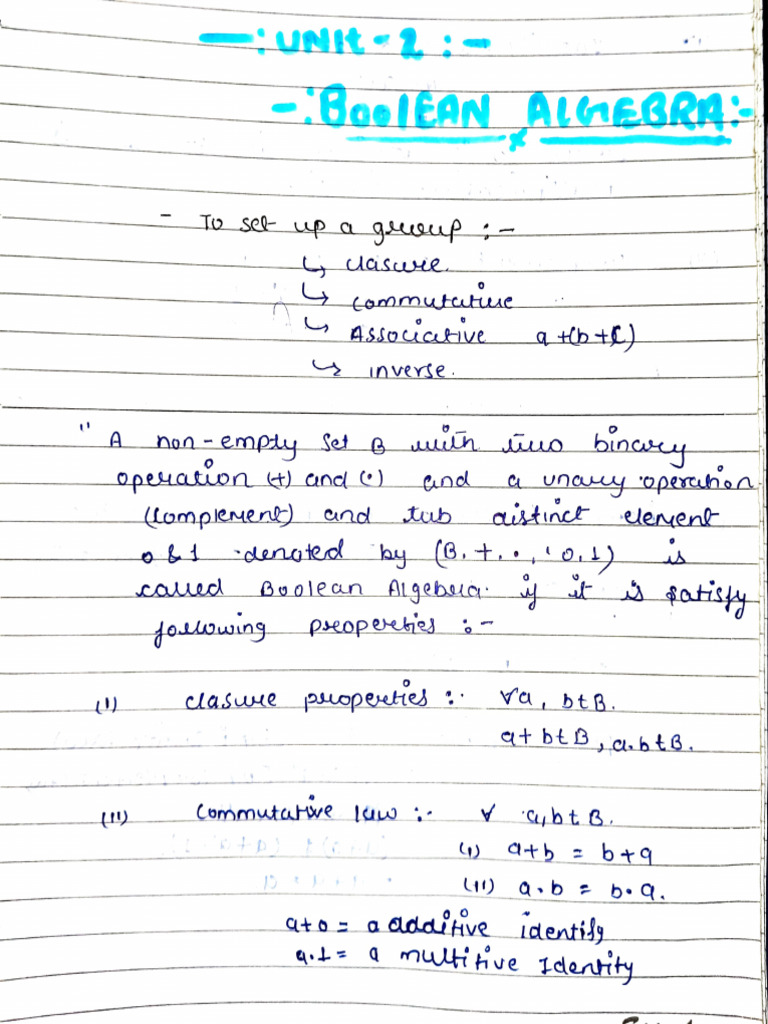 —:UNIT-2:-
-:BOOlEAN ALGEBRA:-
- To set up a group :-
↳ clasure.
↳ commutative
↳ Associative a+(b+C)
↳ inverse.
" A non-empty set B with two binary
operation (+) and (•) and a unary operation
(complement) and tub distinct element
0 & 1 denoted by (B, +, •, ' 0, 1) is
called Boolean Algebra. if it is satisfy
following properties :-
(I) clasure properties :- ∀a, b∈B.
a+b∈B, a.b∈B.
(II) commutative law :- ∀ a,b∈B.
(I) a+b = b+a
(II) a•b = b•a.
a+0 = a additive identify
a.1 = a multitive Identity